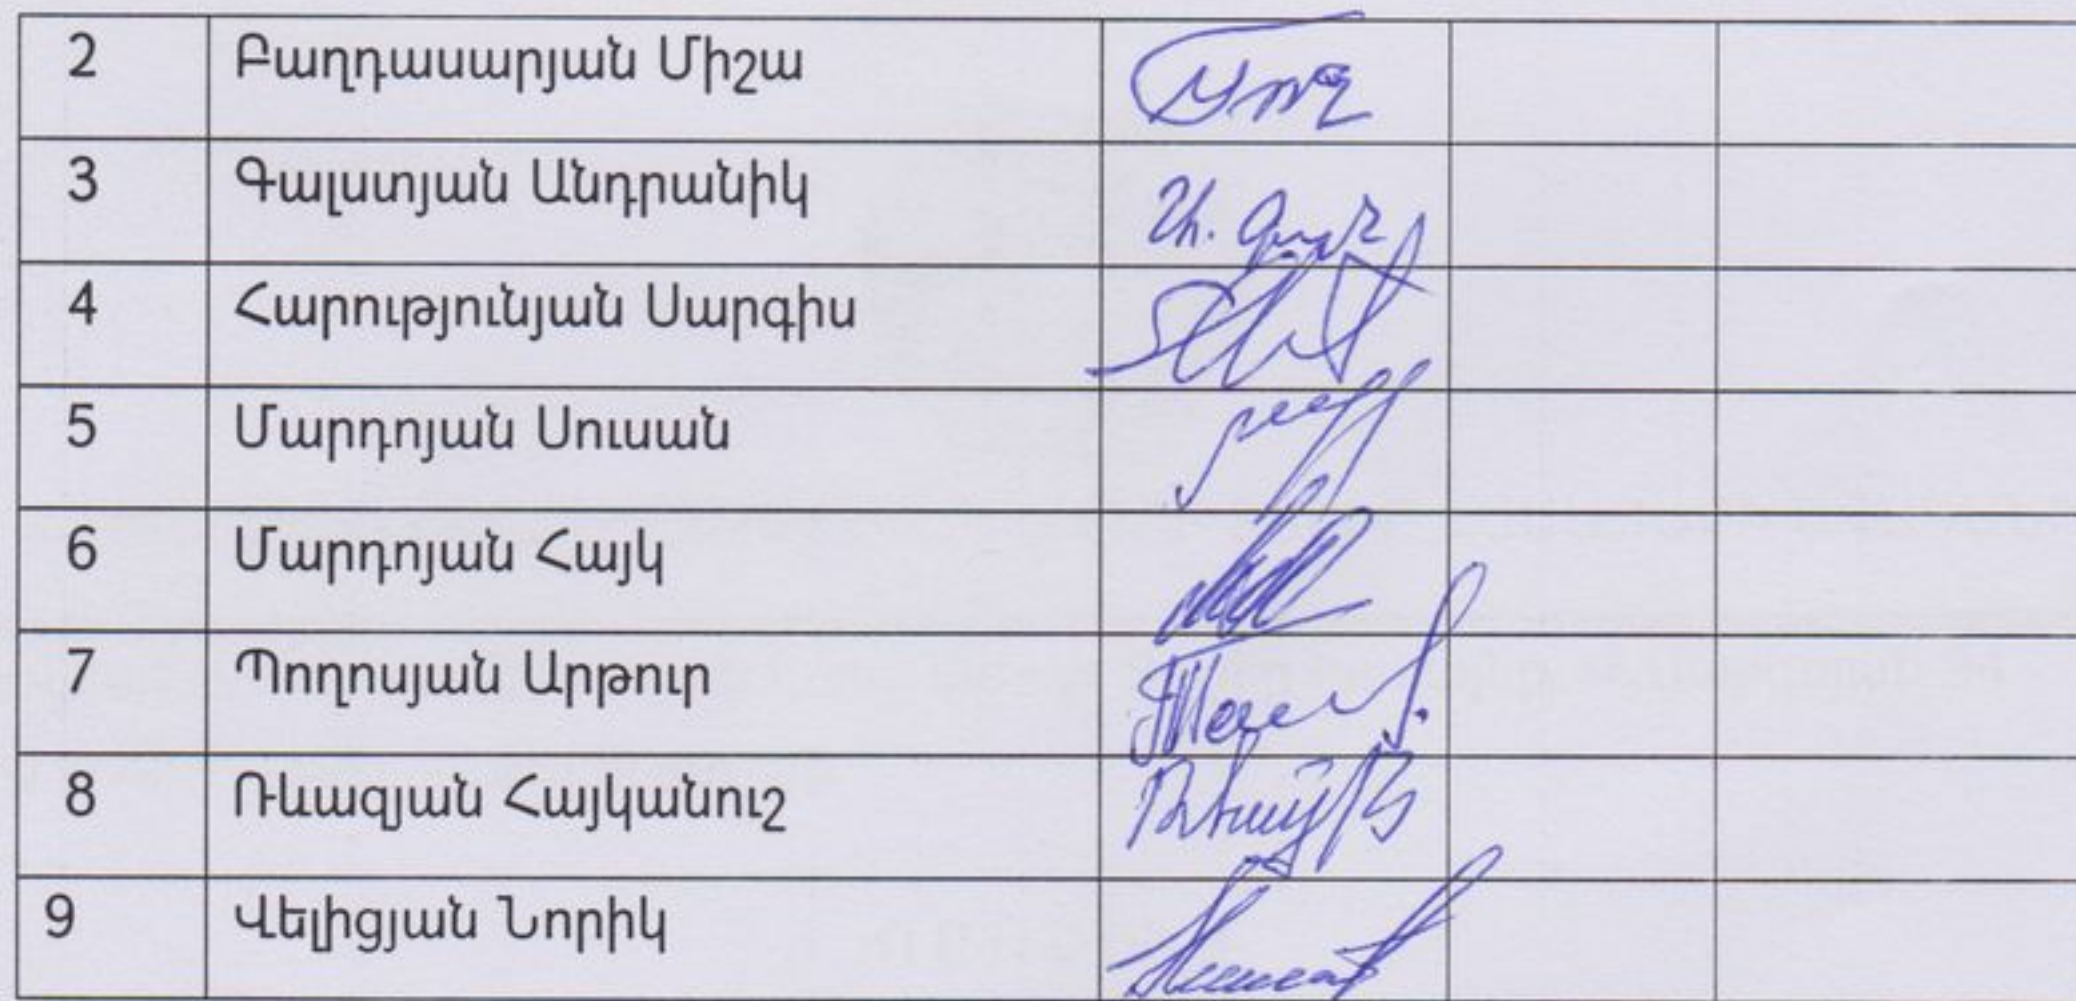 2 Բաղդասարյան Միշա
3 Գալստյան Անդրանիկ
4 Հարությունյան Սարգիս
5 Մարդոյան Սուսան
6 Մարդոյան Հայկ
7 Պողոսյան Արթուր
8 Ռևազյան Հայկանուշ
9 Վելիցյան Նորիկ